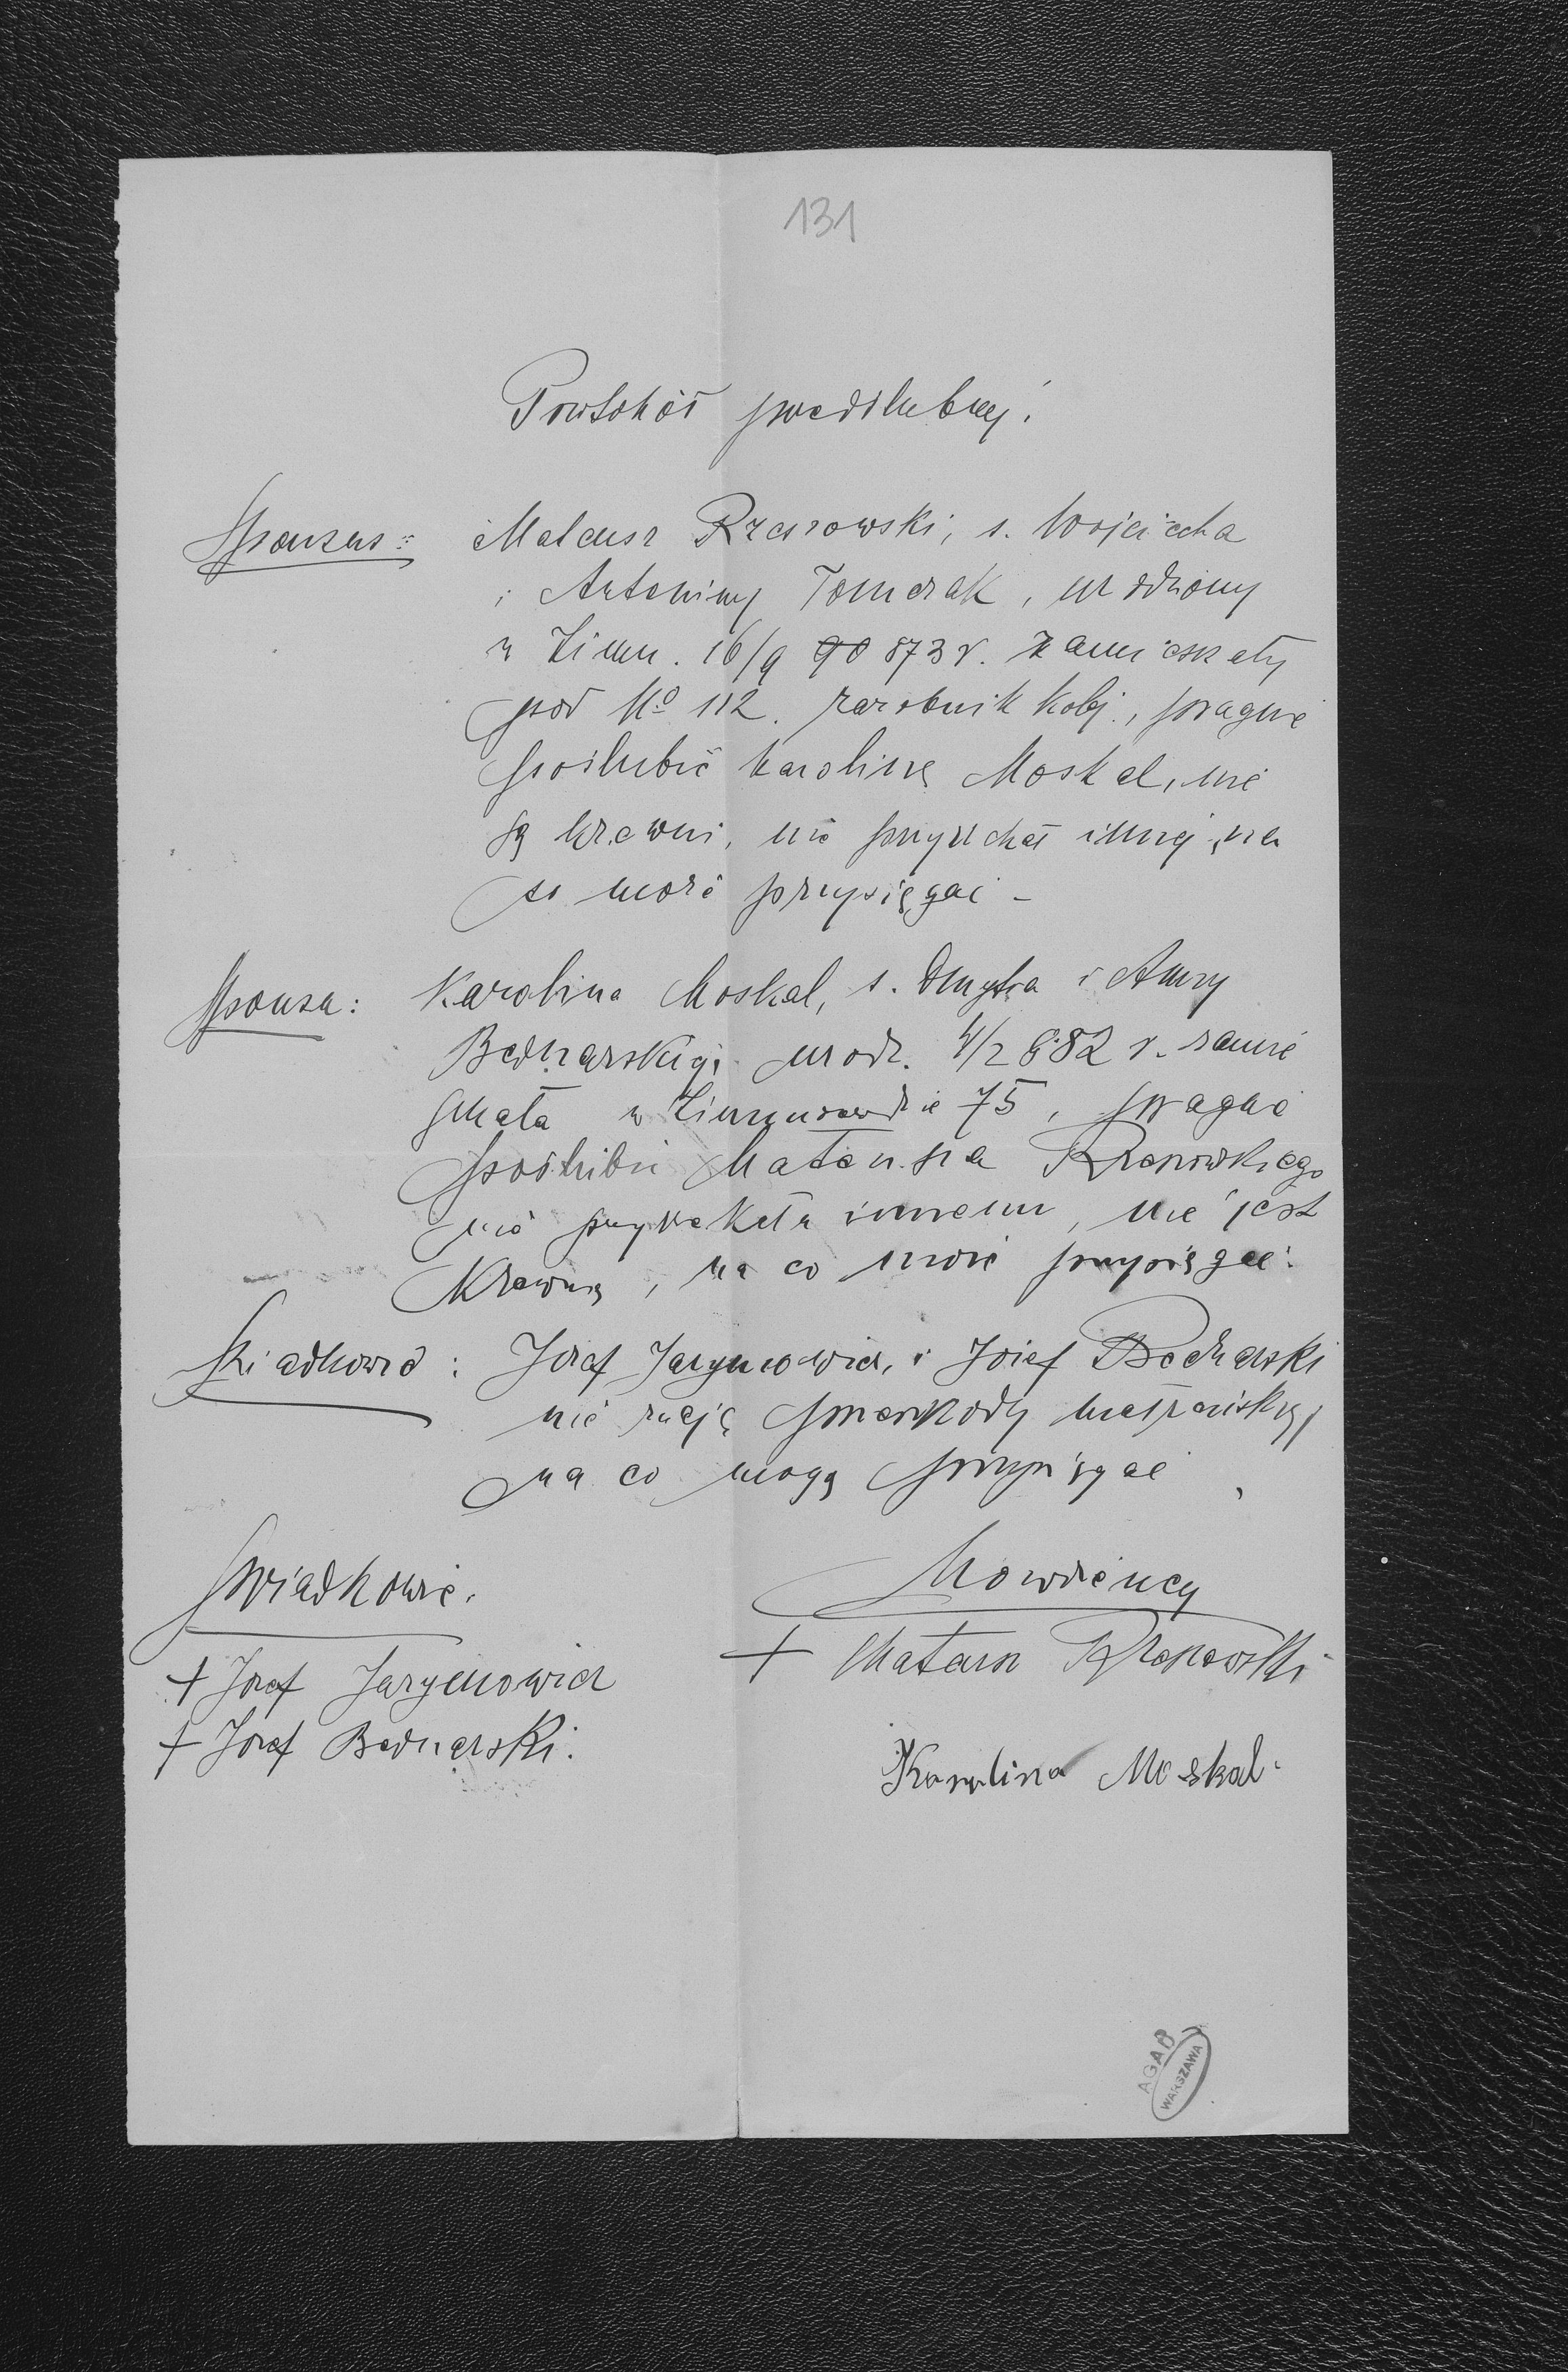 131
Protokół przedślubny.
Sponsus: Mateusz Rzasowski, s. Wojciecha
i Antoniny Tomczak, urodzony
w Zimn. 16/9 90 873 r. zamieszkały
pod No 112. zarobnik kolej., pragnie
poślubić Karolinę Moskal, nie
są krewni, nie przyrzekał innej, na
to może przysięgać -
Sponsa: Karolina Moskal, s. Dmytra i Anny
Bednarskiej urodz. 4/2 882 r. zamie
szkała w Zimnowodzie 75, pragnie
poślubić Mateusza Rzasowskiego
nie przyrzekała innemu, nie jest
krewną, na co może przysięgać.
Świadkowie: Józef Jarymowicz, i Józef Bednarski
nie znają przeszkody małżeńskiej
na co mogą przysięgać,
Świadkowie. Nowożeńcy
+ Józef Jarymowicz + Mateusz Rzasowski
+ Józef Bednarski. Karolina Moskal.
AGAD
WARSZAWA